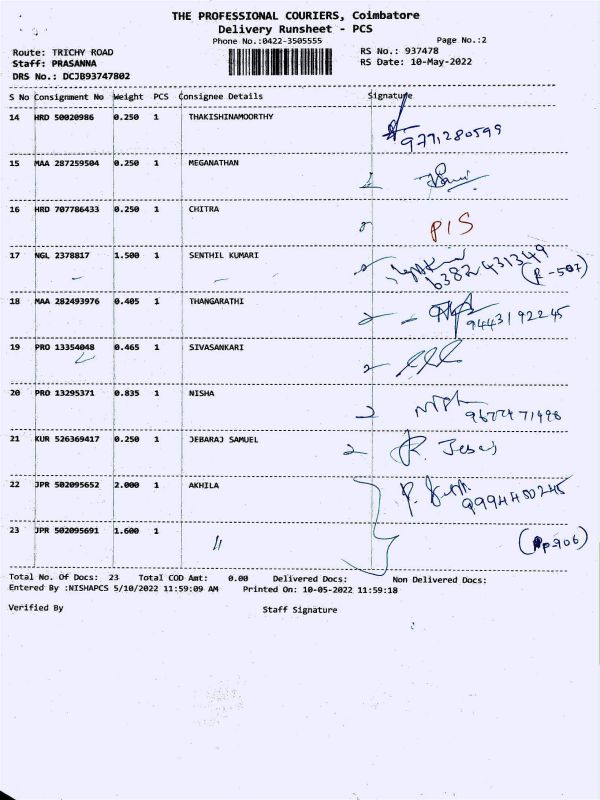 THE PROFESSIONAL COURIERS, Coimbatore
Delivery Runsheet - PCS
Phone No.:0422-3505555 Page No.:2
Route: TRICHY ROAD RS No.: 937478
Staff: PRASANNA RS Date: 10-May-2022
DRS No.: DCJB93747802
S No Consignment No Weight PCS Consignee Details Signature
14 HRD 50020986 0.250 1 THAKISHINAMOORTHY
9771280599
15 MAA 287259504 0.250 1 MEGANATHAN
16 HRD 707786433 0.250 1 CHITRA
P/S
17 NGL 2378817 1.500 1 SENTHIL KUMARI
6382431349
18 MAA 282493976 0.405 1 THANGARATHI
9443192245
19 PRO 13354048 0.465 1 SIVASANKARI
20 PRO 13295371 0.835 1 NISHA
21 KUR 526369417 0.250 1 JEBARAJ SAMUEL
22 JPR 502095652 2.000 1 AKHILA
9994450245
23 JPR 502095691 1.600 1 "
Total No. Of Docs: 23 Total COD Amt: 0.00 Delivered Docs: Non Delivered Docs:
Entered By :NISHAPCS 5/10/2022 11:59:09 AM Printed On: 10-05-2022 11:59:18
Verified By Staff Signature